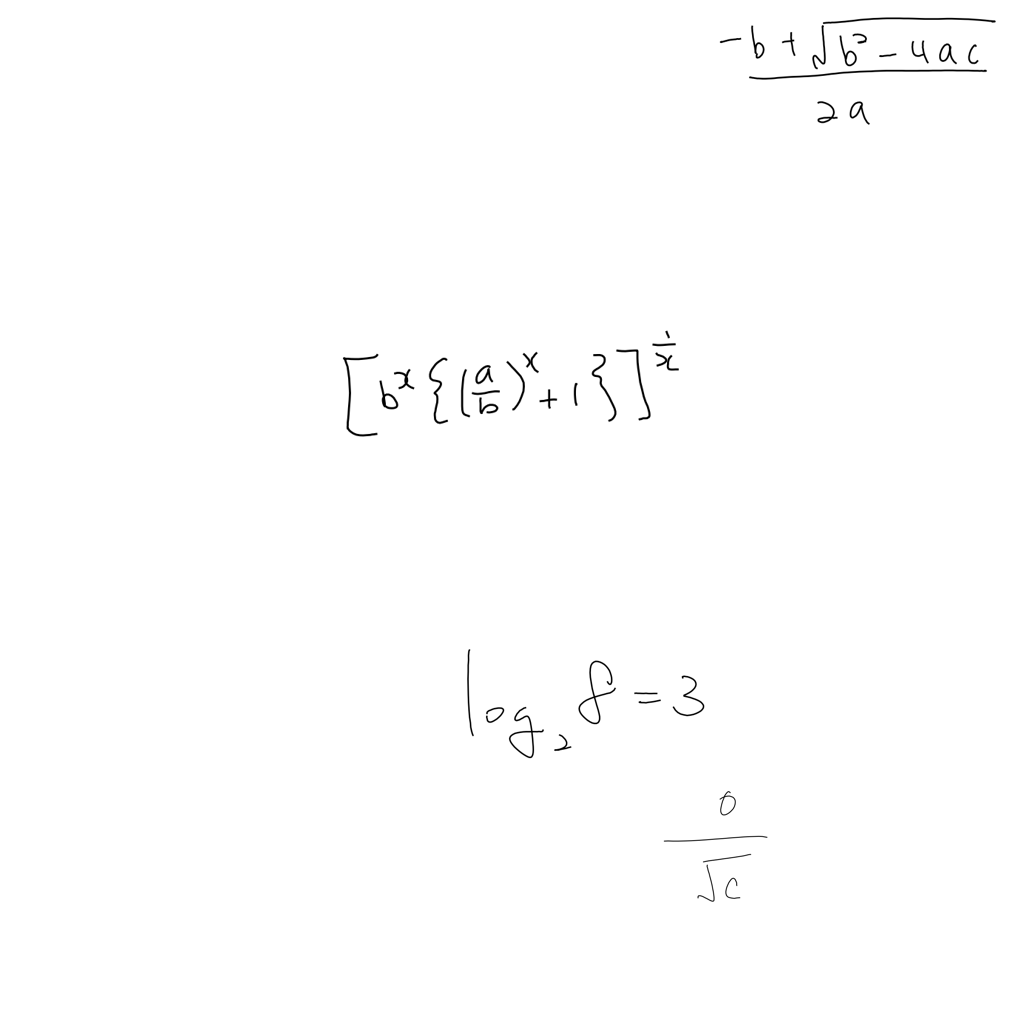 \frac{-b+\sqrt{b^2-4ac}}{2a}
\left[b^x\left\{\left(\frac{a}{b}\right)^x+1\right\}\right]^{\frac{1}{x}}
\log_2 8=3
\frac{0}{\sqrt{c}}